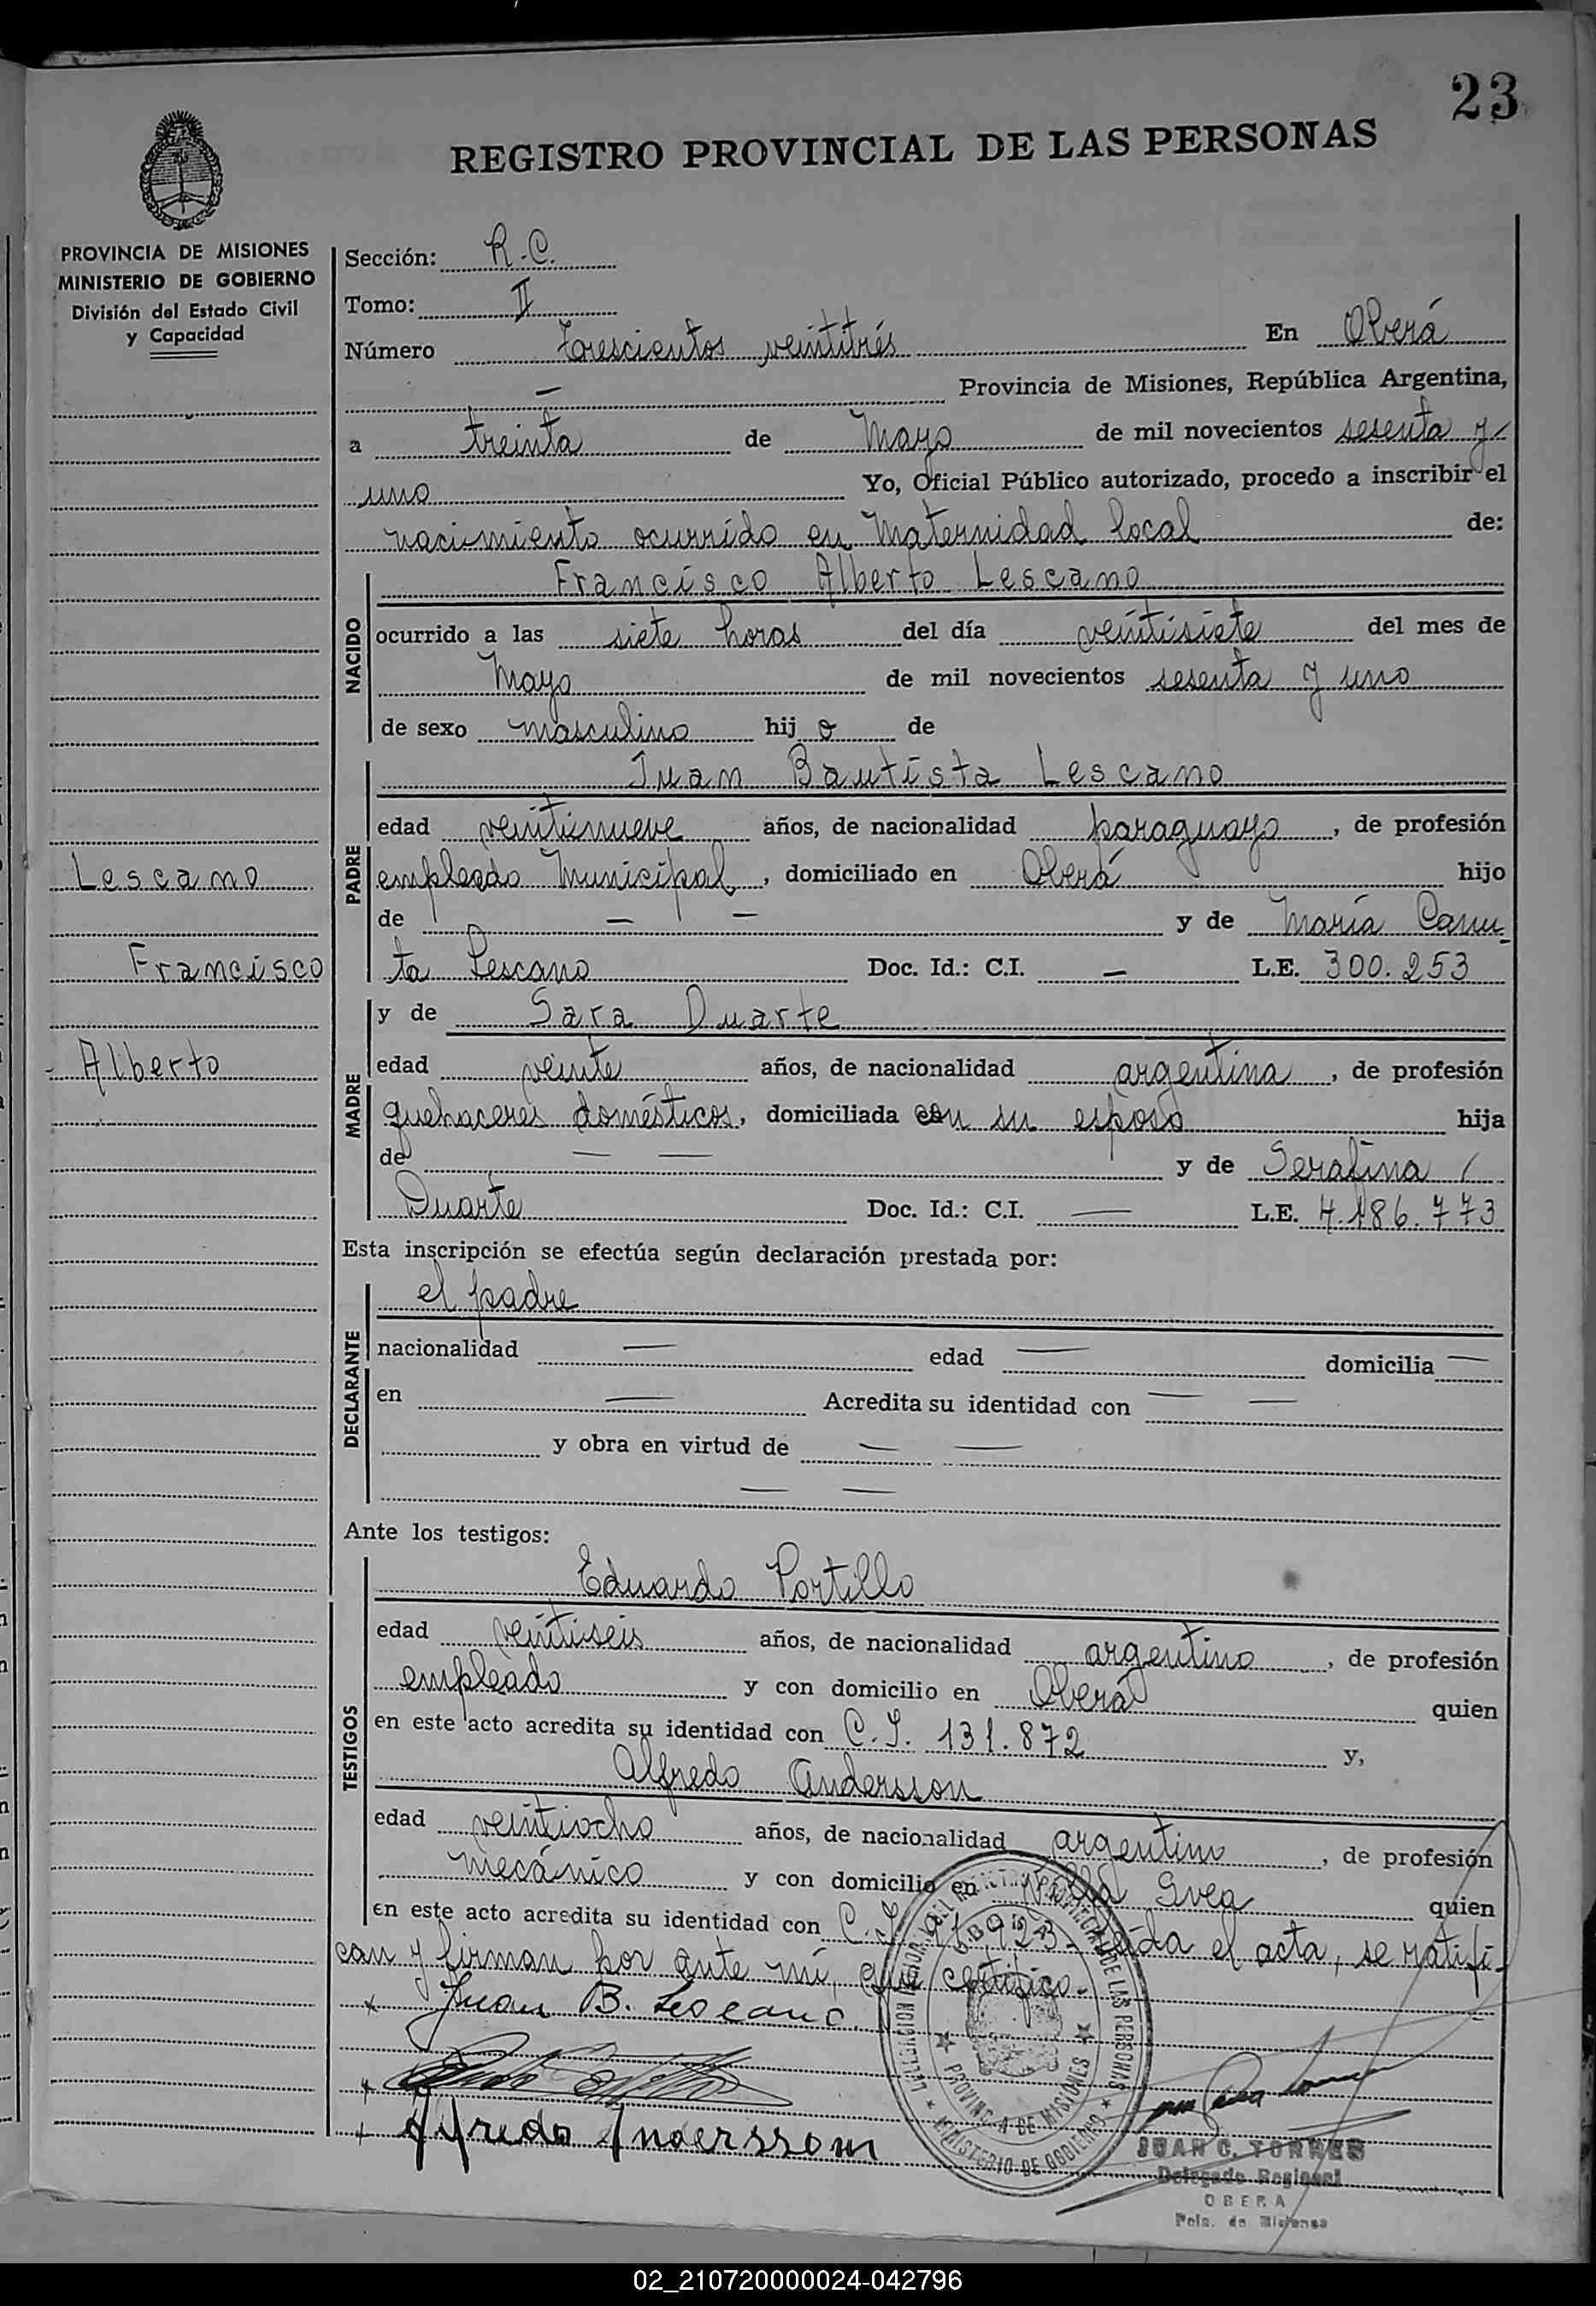 23
REGISTRO PROVINCIAL DE LAS PERSONAS
PROVINCIA DE MISIONES
MINISTERIO DE GOBIERNO
División del Estado Civil
y Capacidad
Lescano
Francisco
Alberto
Sección: R.C.
Tomo: II
Número trescientos veintitrés En Oberá
— Provincia de Misiones, República Argentina,
a treinta de Mayo de mil novecientos sesenta y
uno Yo, Oficial Público autorizado, procedo a inscribir el
nacimiento ocurrido en Maternidad local de:
NACIDO
Francisco Alberto Lescano
ocurrido a las siete horas del día veintisiete del mes de
Mayo de mil novecientos sesenta y uno
de sexo masculino hij o de
PADRE
Juan Bautista Lescano
edad veintinueve años, de nacionalidad paraguayo, de profesión
empleado Municipal, domiciliado en Oberá hijo
de — — y de María Canu-
ta Lescano Doc. Id.: C.I. — L.E. 300.253
MADRE
y de Sara Duarte
edad veinte años, de nacionalidad argentina, de profesión
quehaceres domésticos, domiciliada con su esposo hija
de — — y de Serafina
Duarte Doc. Id.: C.I. — L.E. 4.186.773
Esta inscripción se efectúa según declaración prestada por:
DECLARANTE
el padre
nacionalidad — edad — domicilia —
en — Acredita su identidad con — —
y obra en virtud de — —
— —
Ante los testigos:
TESTIGOS
Eduardo Portillo
edad veintiseis años, de nacionalidad argentino, de profesión
empleado y con domicilio en Oberá quien
en este acto acredita su identidad con C.I. 131.872 y,
Alfredo Andersson
edad veintiocho años, de nacionalidad argentino, de profesión
mecánico y con domicilio en Villa Svea quien
en este acto acredita su identidad con C.I. 91.923- Leída el acta, se ratifi-
can y firman por ante mí, que certifico.-
x Juan B. Lescano.
x
+ Alfredo Anderssom
PROVINCIA DE MISIONES
MINISTERIO DE GOBIERNO
JUAN C. TORRES
Delegado Regional
OBERA
Pcia. de Misiones
02_210720000024-042796